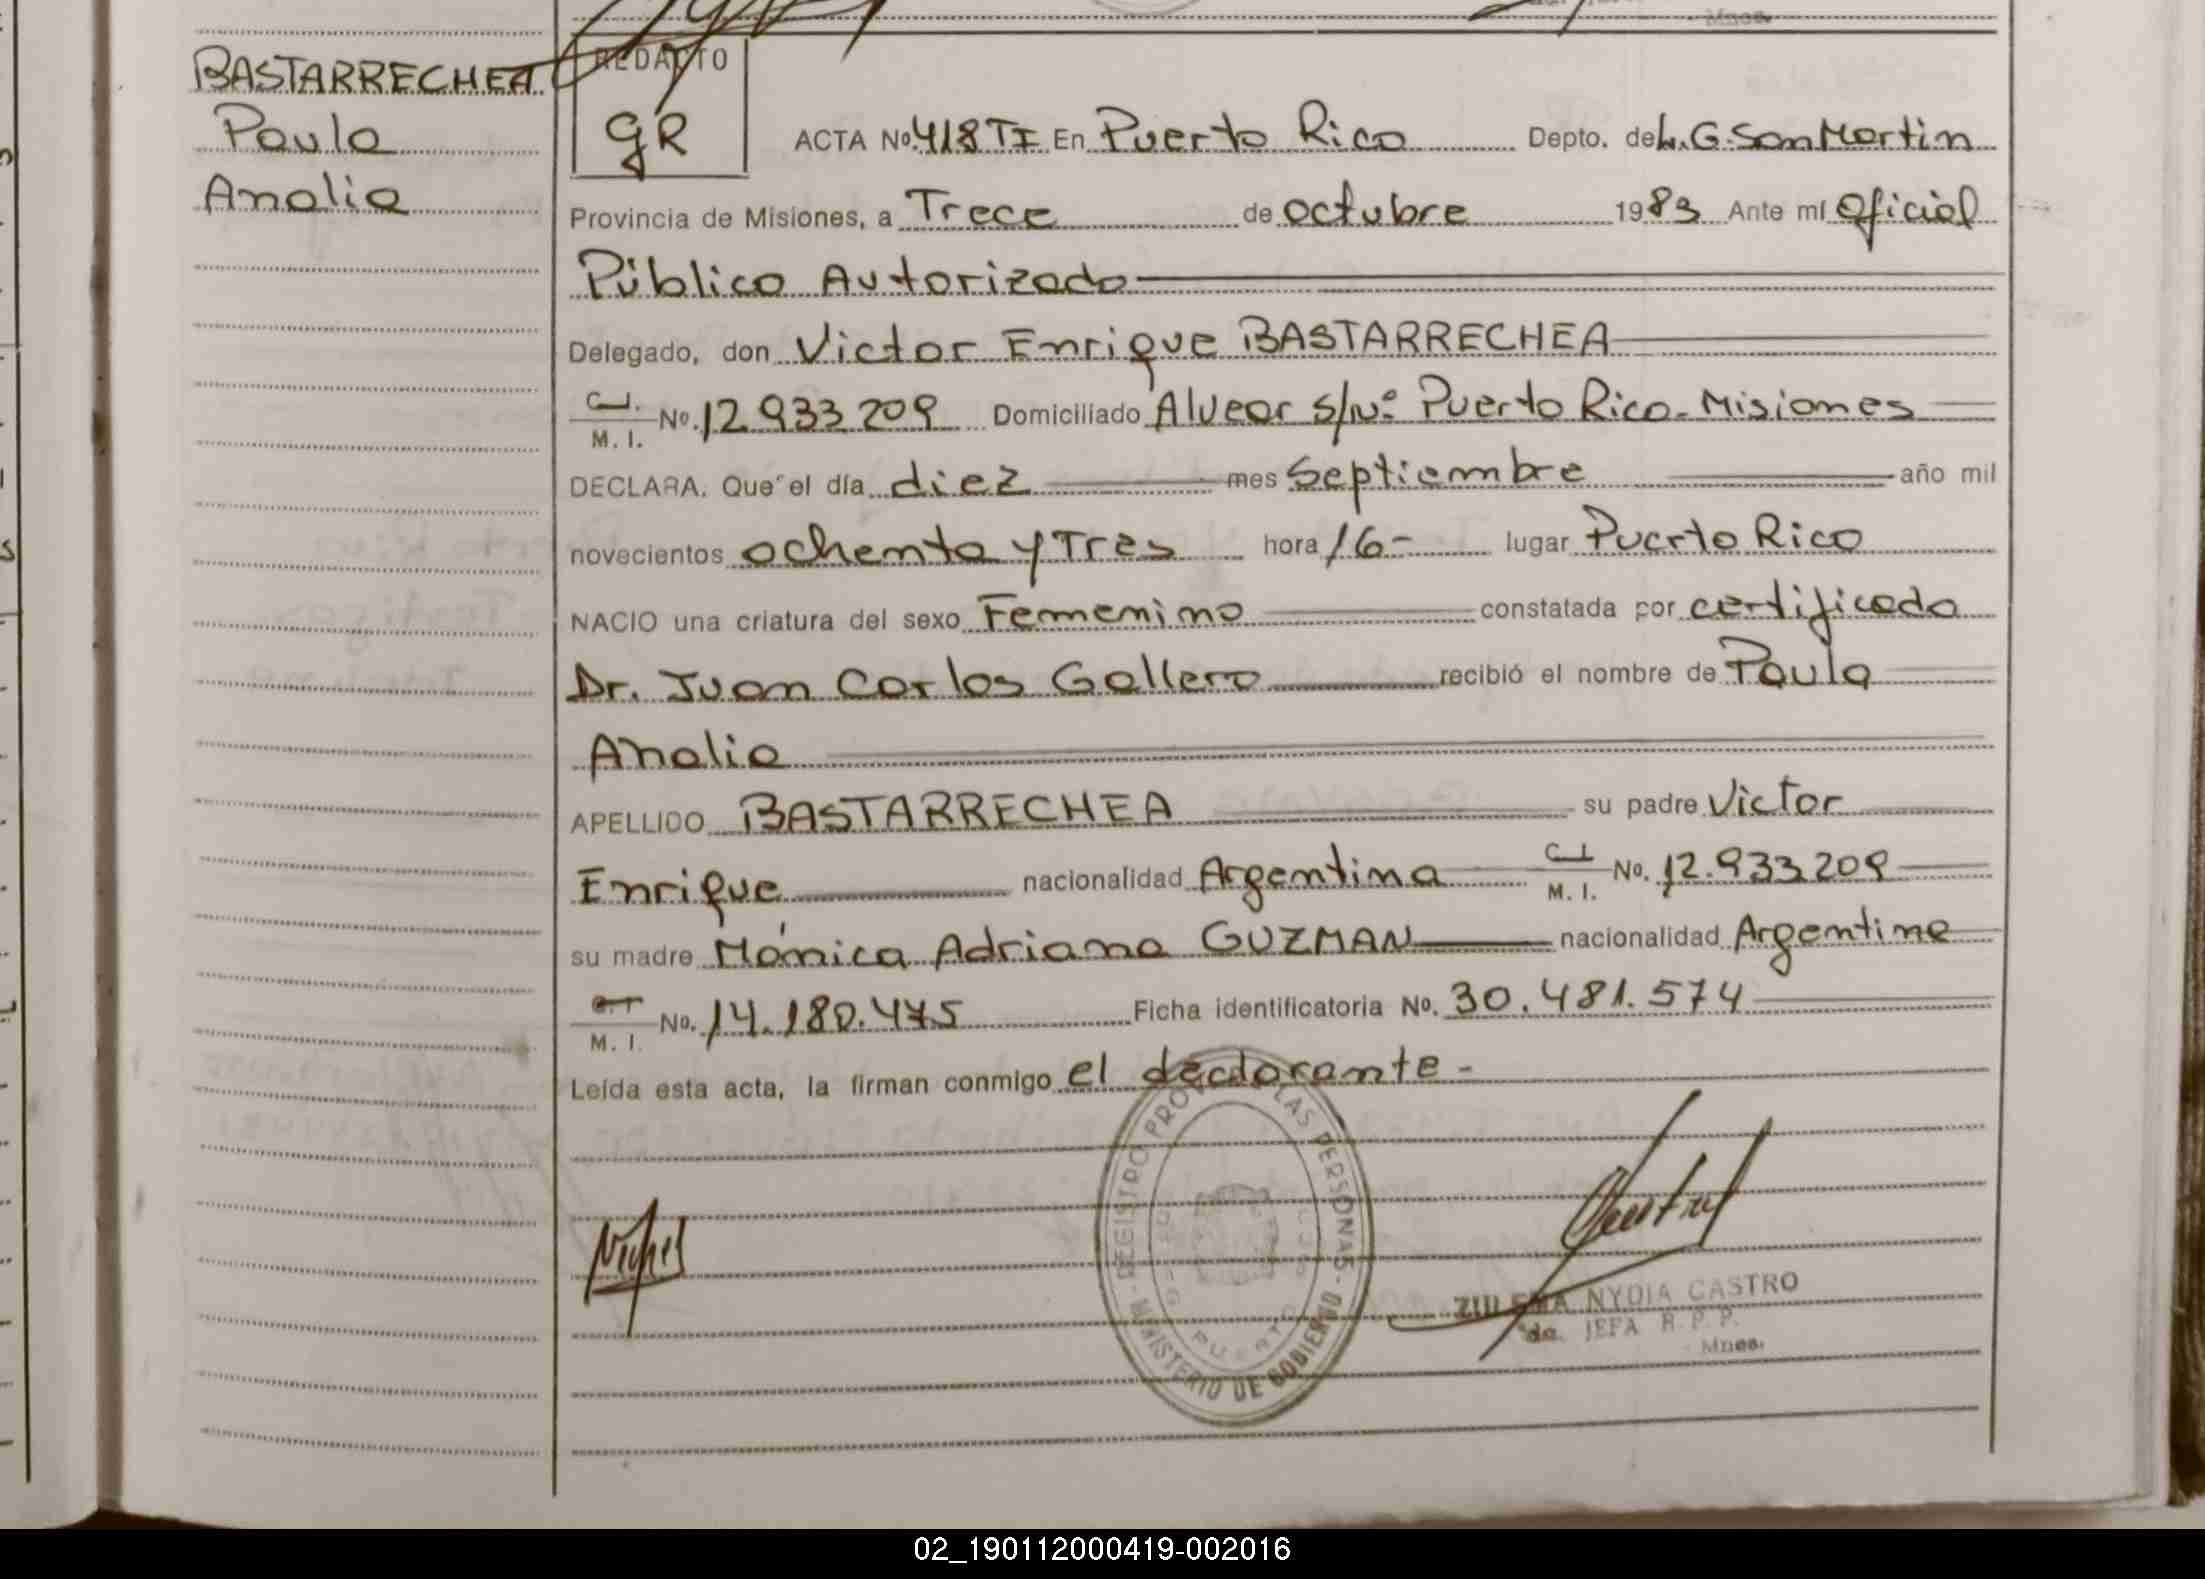 BASTARRECHEA
Paula
Analia
REDACTO
GR
ACTA No. 418 TI En Puerto Rico Depto. de L.G. San Martin
Provincia de Misiones, a Trece de octubre 1983 Ante mí Oficial
Público Autorizado
Delegado, don Victor Enrique BASTARRECHEA
C.I. / M. I. No. 12.933.209 Domiciliado Alvear S/Nº Puerto Rico - Misiones
DECLARA. Que el día diez mes Septiembre año mil
novecientos ochenta y Tres hora 16- lugar Puerto Rico
NACIO una criatura del sexo Femenino constatada por certificado
Dr. Juan Carlos Gallero recibió el nombre de Paula
Analia
APELLIDO BASTARRECHEA su padre Victor
Enrique nacionalidad Argentina C.I. / M. I. No. 12.933.209
su madre Mónica Adriana GUZMAN nacionalidad Argentina
C.I. / M. I. No. 14.180.475 Ficha identificatoria No. 30.481.574
Leída esta acta, la firman conmigo el declarante -
REGISTRO PROV LAS PERSONAS - MINISTERIO DE GOBIERNO
PUERTO
ZULEMA NYDIA CASTRO
da. JEFA R. P. P.
Mnes.
02_190112000419-002016